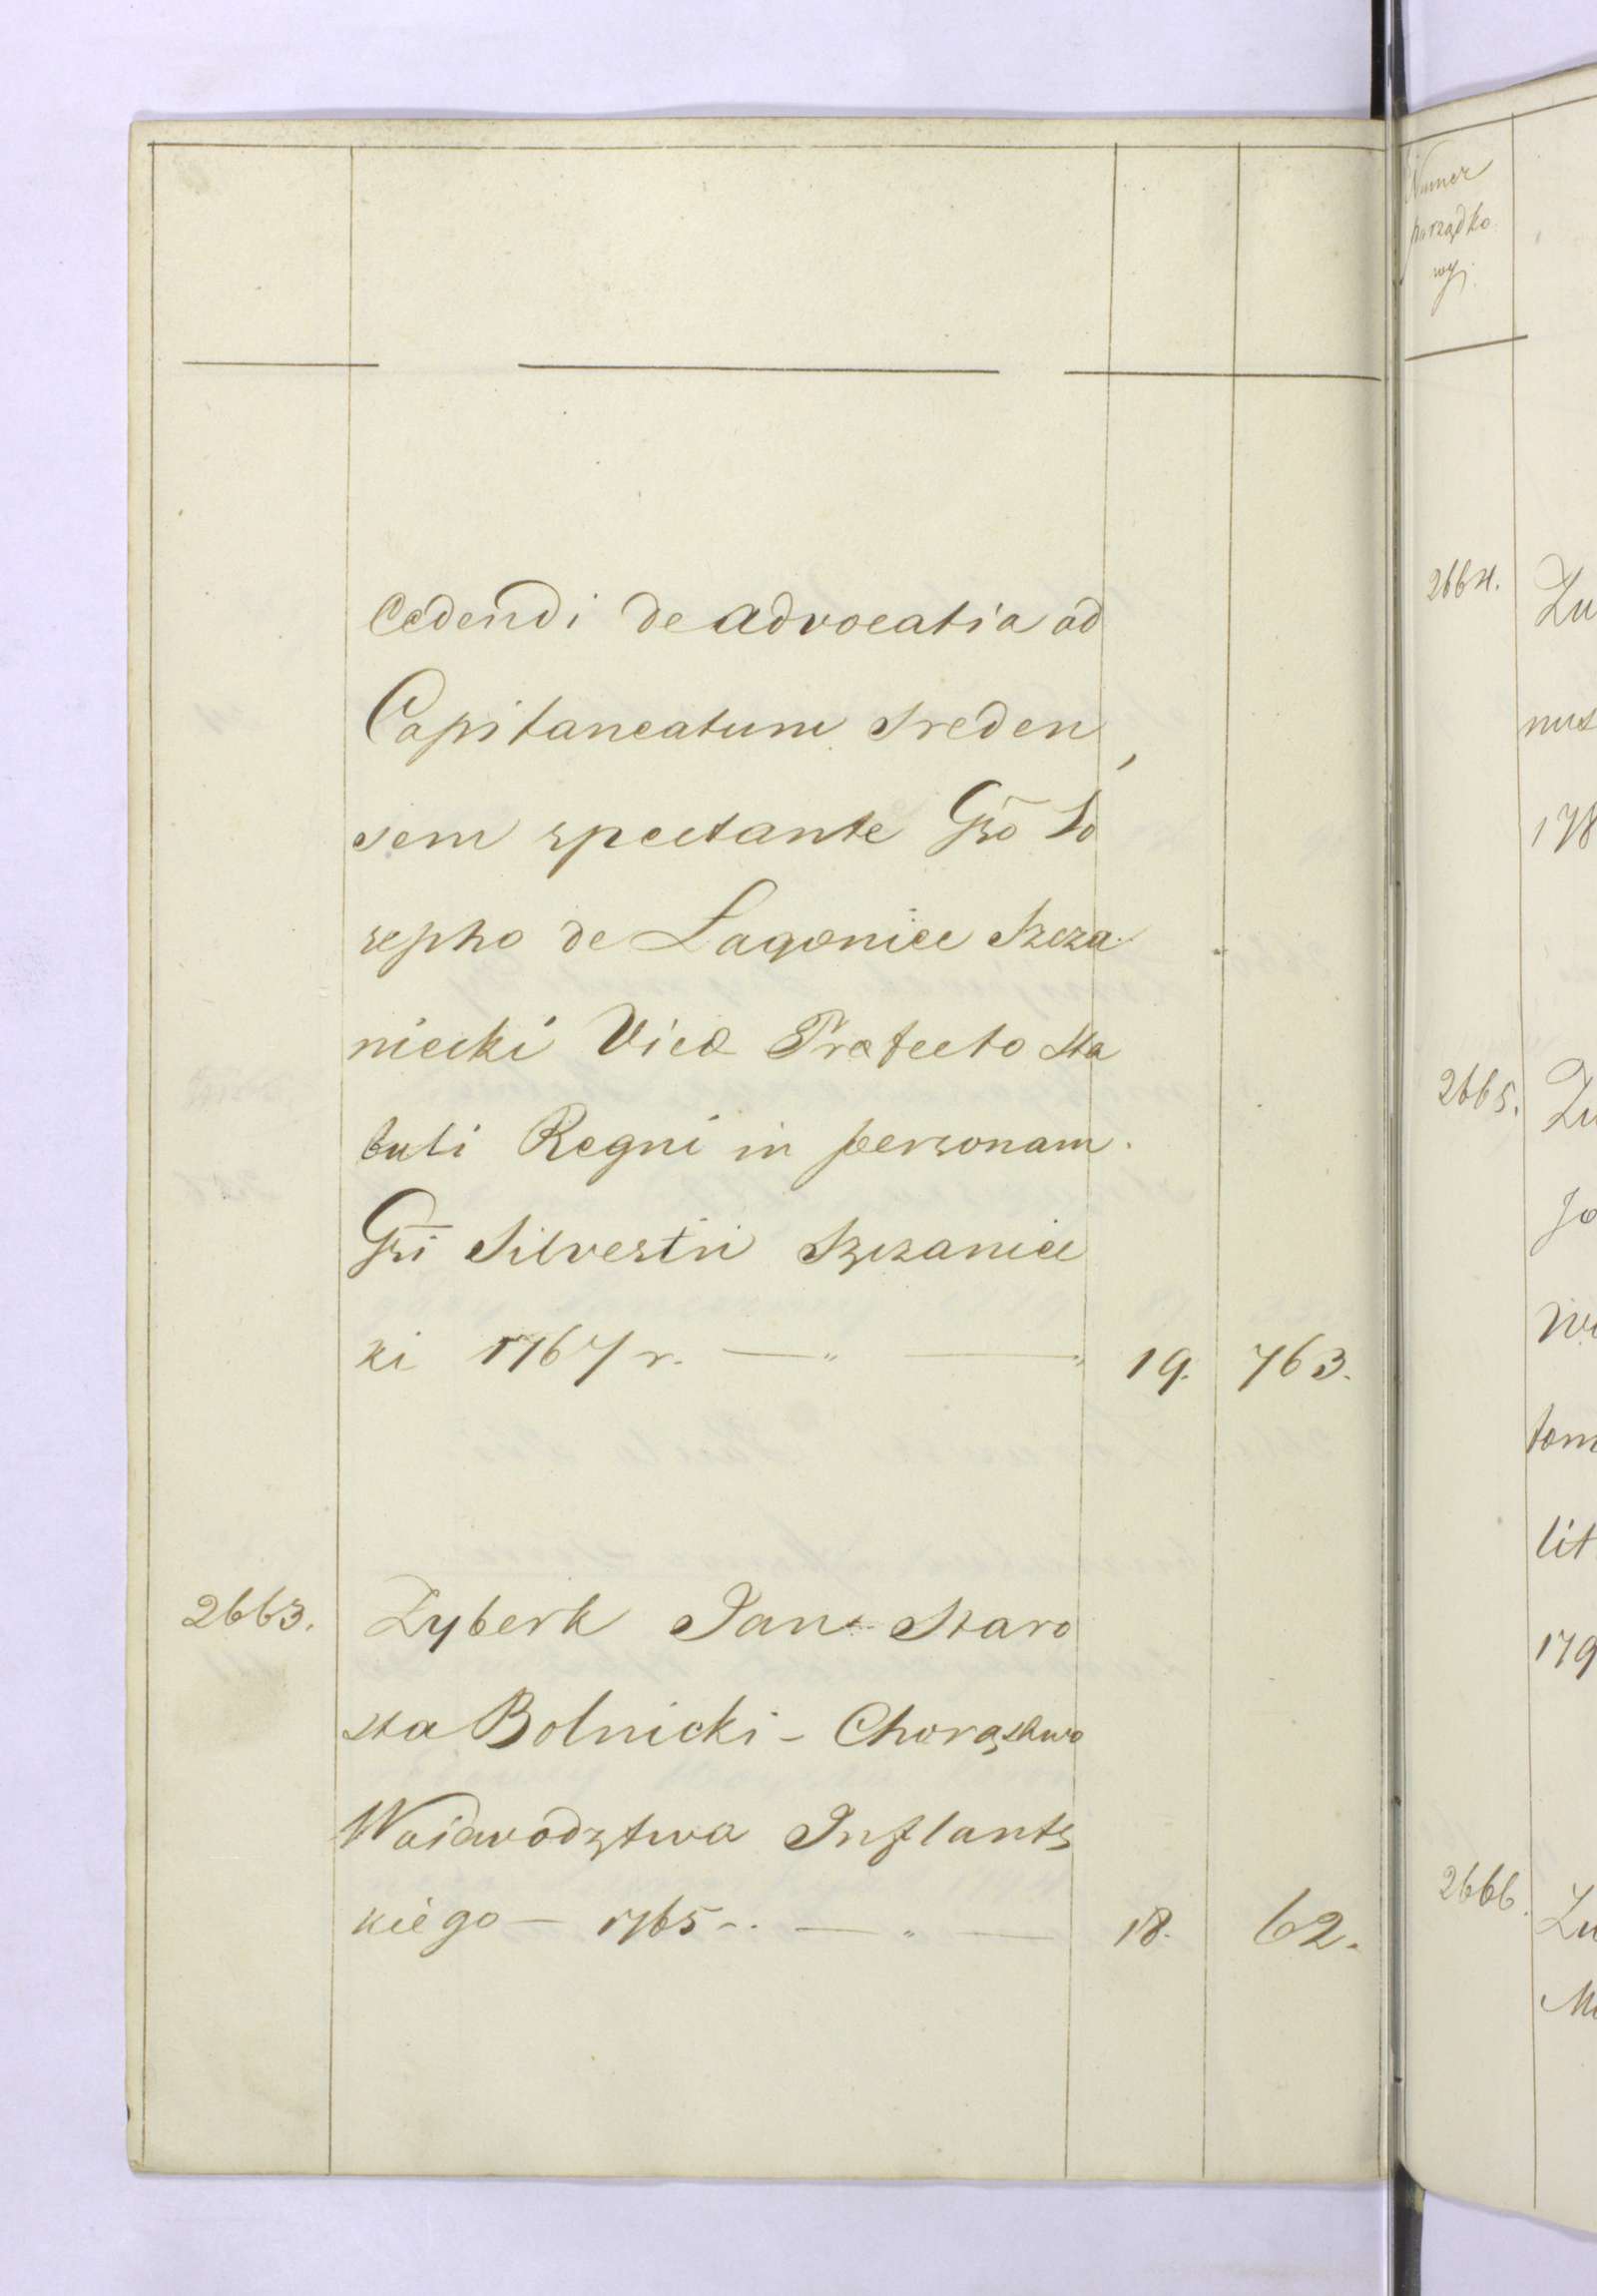 Cedendi de advocatia ad
Capitaneatum Sreden
sem spectante Gso Jo
sepho de Lagonice Szcza
niecki Vice Prefecto Sta
buli Regni in personam.
Gsi Silvestri Szczaniec
ki 1767 r. — " — " 19. 763.
2663. Zyberk Jan - Staro
sta Bolnicki - Chorąstwo
Woiewodztwa Inflants
kiego — 1765 - . — " — 18. 62.
Numer
porządko
wy.
2664. Zu
nus
178
2665. Zu
Jo
tom
lit
179
2666. Zu